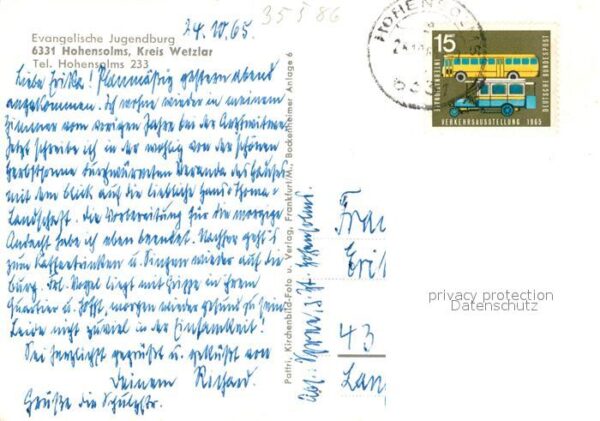 24.10.65.
35586
Evangelische Jugendburg
6331 Hohensolms, Kreis Wetzlar
Tel. Hohensolms 233
Liebe Erika! Planmäßig gestern abend
angekommen. Ich wohne wieder in meinem
Zimmer vom vorigen Jahre bei der Arztwitwe.
Jetzt schreibe ich in der wohlig von der schönen
Herbstsonne durchwärmten Veranda des Hauses
mit dem Blick auf die liebliche Hans Thoma-
Landschaft. Die Vorbereitung für die morgige
Andacht habe ich eben beendet. Nachher geht's
zum Kaffeetrinken u. Singen wieder auf die
Burg. Frl. Vogel liegt mit Grippe in ihrem
Quartier u. hofft, morgen wieder gesund zu sein.
Leide nicht zuviel in der Einsamkeit!
Sei herzlichst gegrüßt u. geküßt von
Deinem Richard.
Grüße die Schulstr.
Pattri, Kirchenbild-Foto u. Verlag, Frankfurt/M., Bockenheimer Anlage 6
Abs.: z. Zt. Hohensolms.
HOHENSOLMS
633
15
DEUTSCHE BUNDESPOST
VERKEHRSAUSSTELLUNG 1965
Frau
Eri
43
privacy protection
Datenschutz